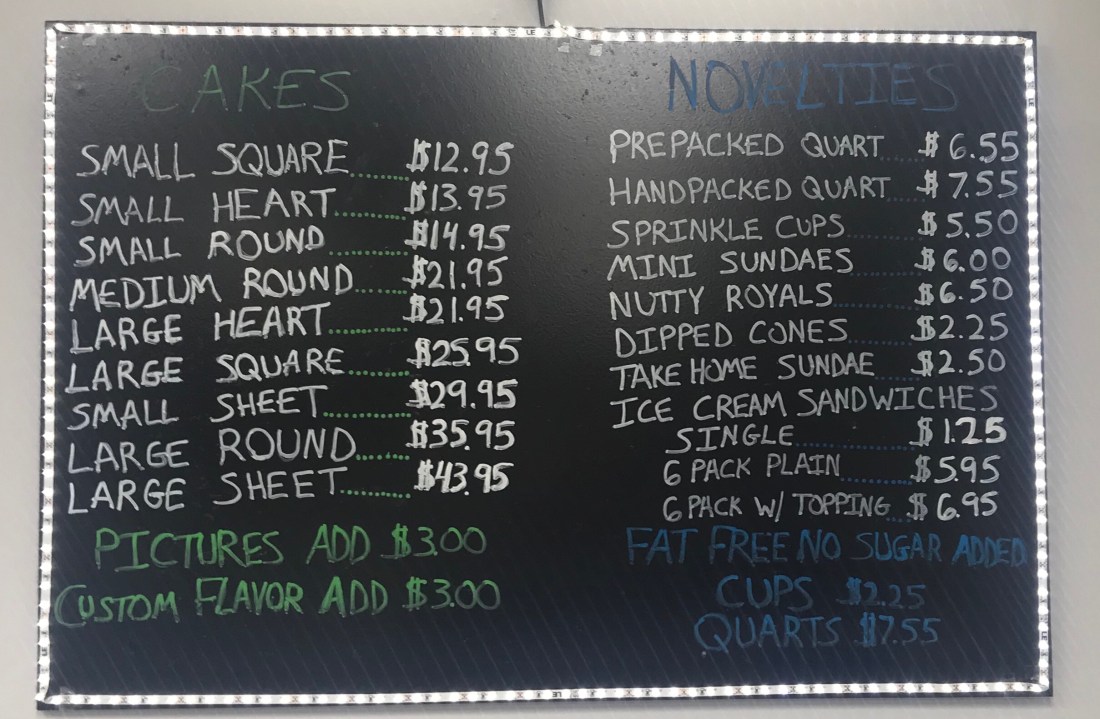 CAKES
SMALL SQUARE......$12.95
SMALL HEART.......$13.95
SMALL ROUND.......$14.95
MEDIUM ROUND......$21.95
LARGE HEART.......$21.95
LARGE SQUARE......$25.95
SMALL SHEET.......$29.95
LARGE ROUND.....$35.95
LARGE SHEET.......$43.95
PICTURES ADD $3.00
CUSTOM FLAVOR ADD $3.00
NOVELTIES
PREPACKED QUART...$6.55
HANDPACKED QUART...$7.55
SPRINKLE CUPS.......$5.50
MINI SUNDAES.......$6.00
NUTTY ROYALS.......$6.50
DIPPED CONES.......$2.25
TAKE HOME SUNDAE....$2.50
ICE CREAM SANDWICHES
SINGLE..........$1.25
6 PACK PLAIN.......$5.95
6 PACK W/ TOPPING...$6.95
FAT FREE NO SUGAR ADDED
CUPS $2.25
QUARTS $7.55